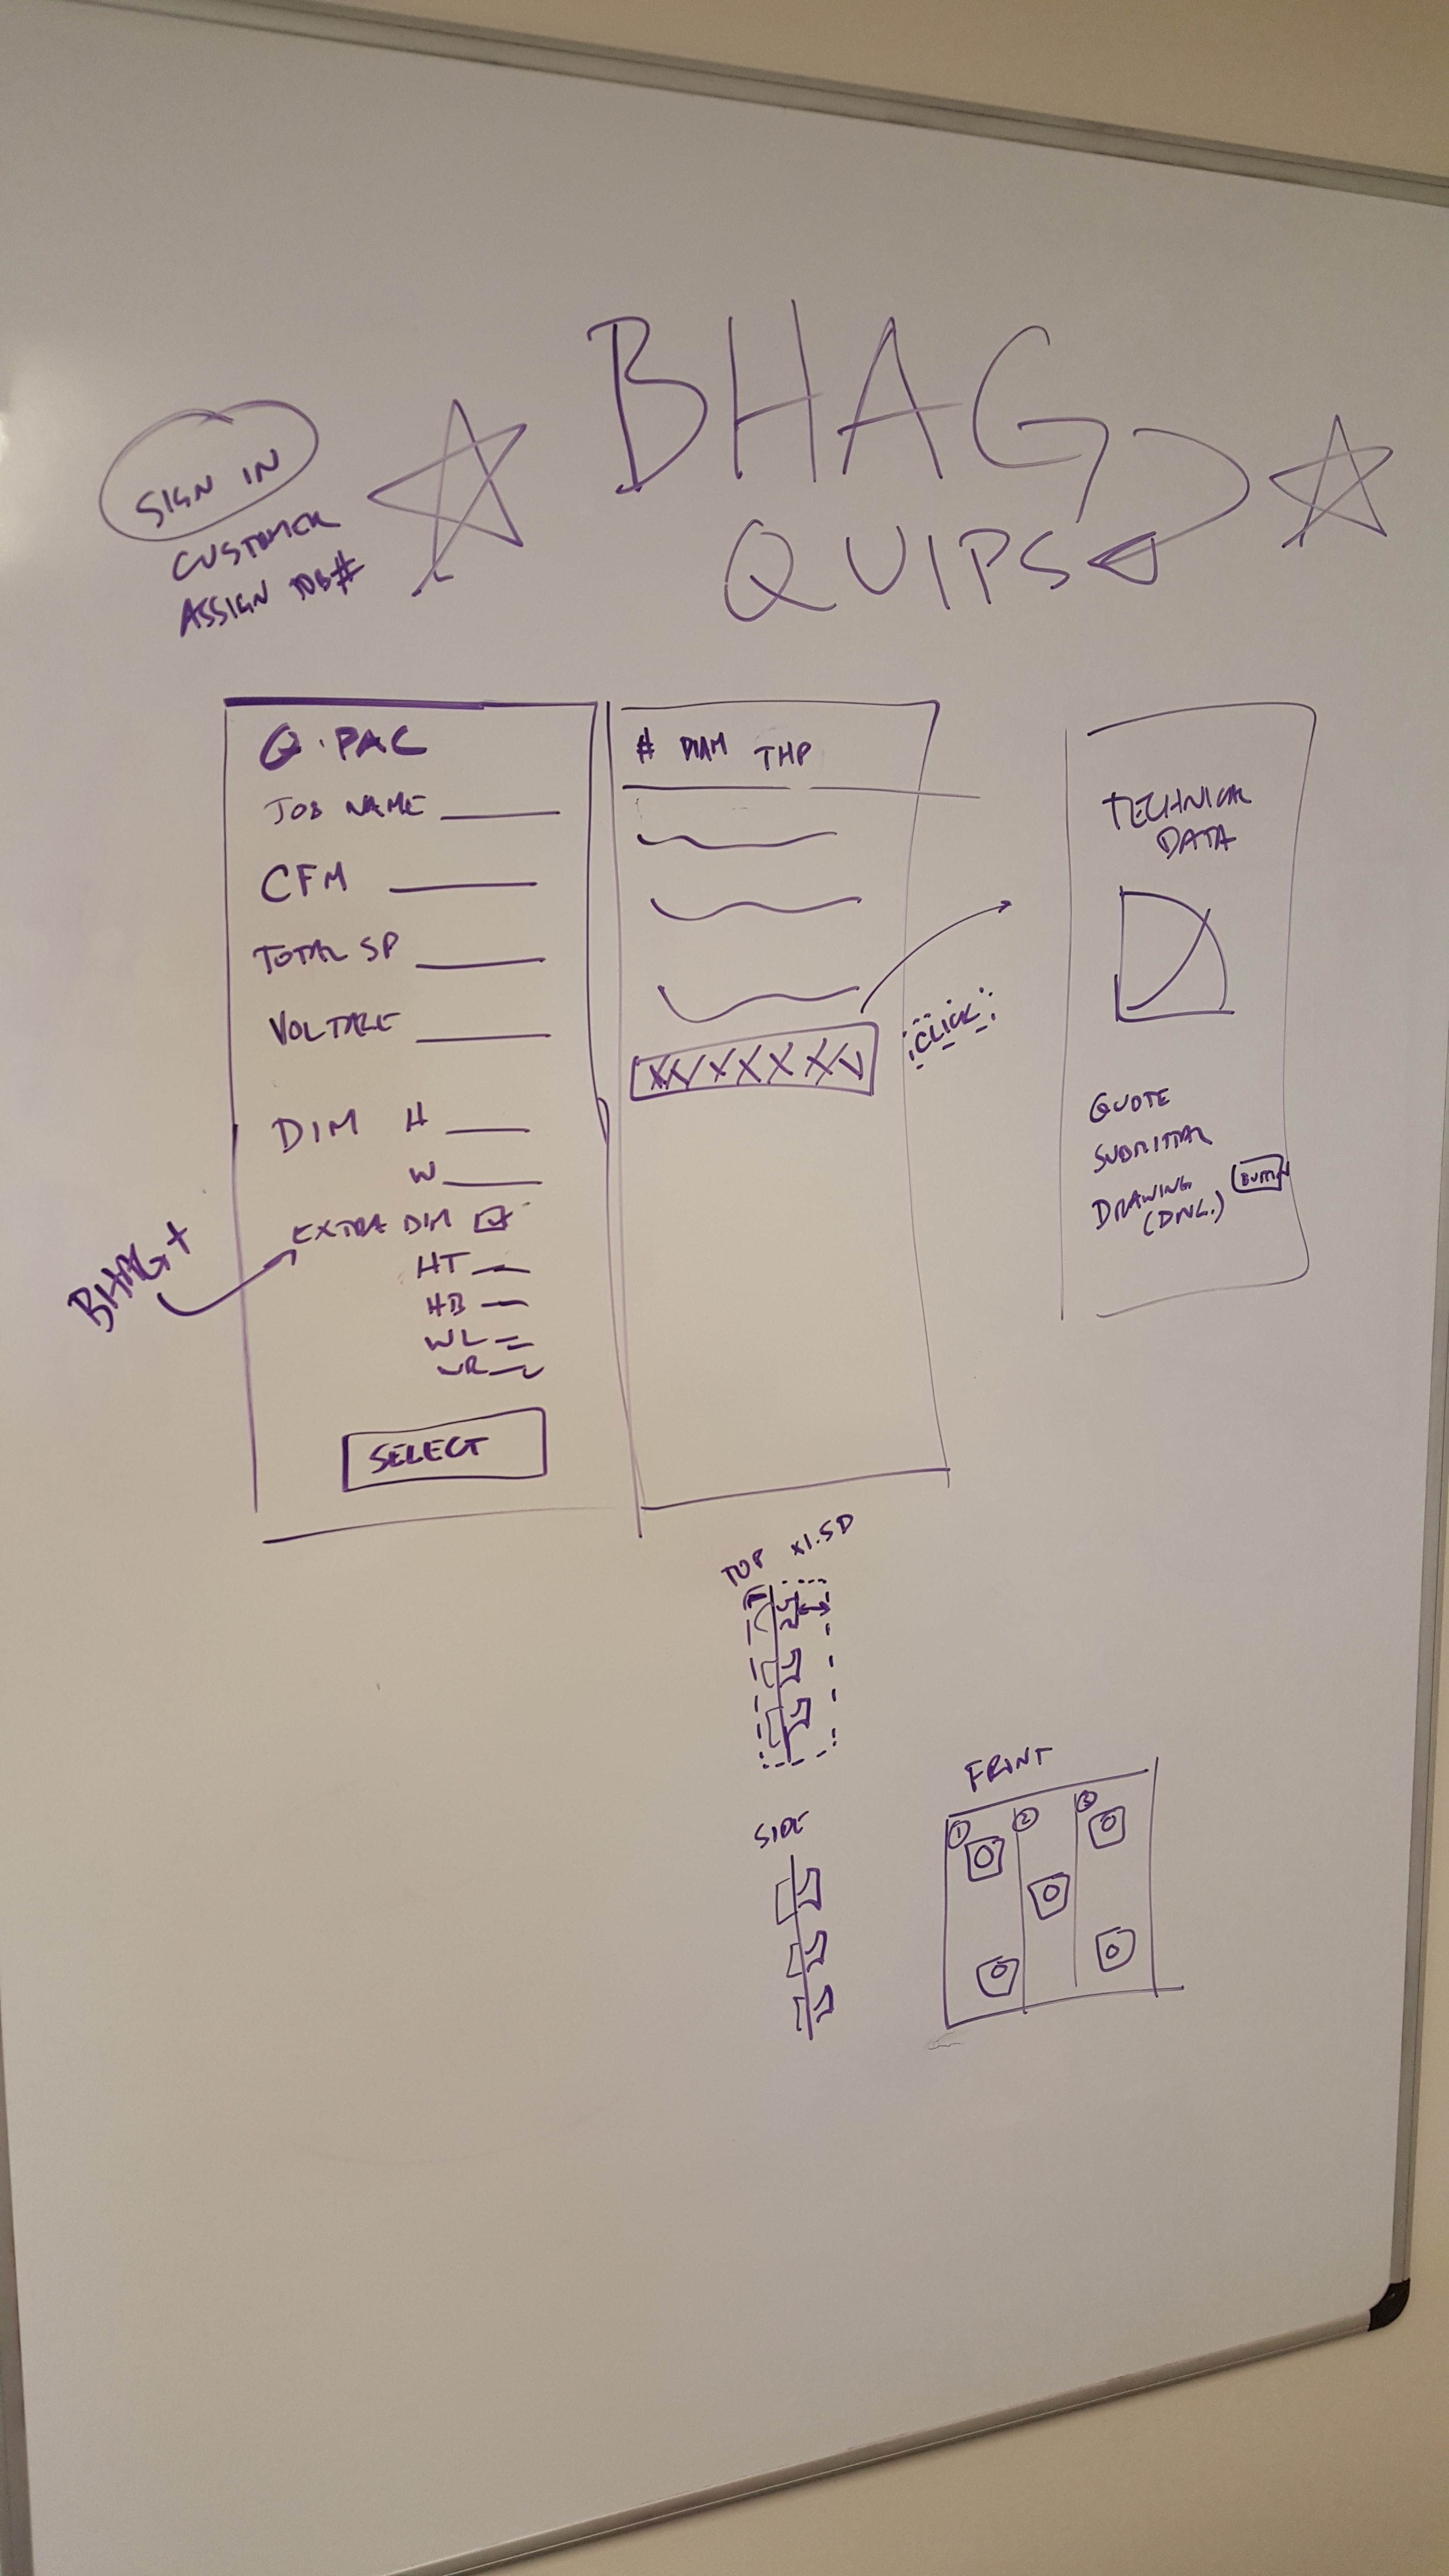 BHAG
QUIPS
SIGN IN
CUSTOMER
ASSIGN JOB#
Q-PAC
JOB NAME
CFM
TOTAL SP
VOLTAGE
DIM H
W
EXTRA DIM
HT
HB
WL
WR
SELECT
BHAG+
# DIAM THP
XXXXXXX
CLICK
TECHNICAL
DATA
QUOTE
SUBMITTAL
DRAWING
BUTTON
TOP x1.5D
SIDE
FRONT
1 2 3